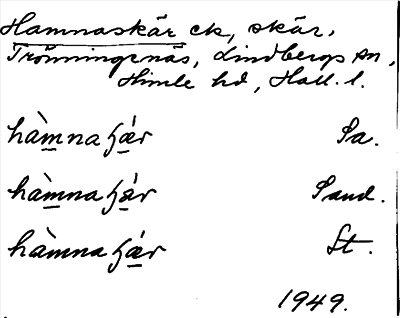 Hamnaskär ck, skär,
Trönningenäs, Lindbergs sn,
Himle hd, Hall. l.
hàmnaʃæ̀r Sa.
hàmnaʃár Sand.
hàmnaʃǽr St.
1949.